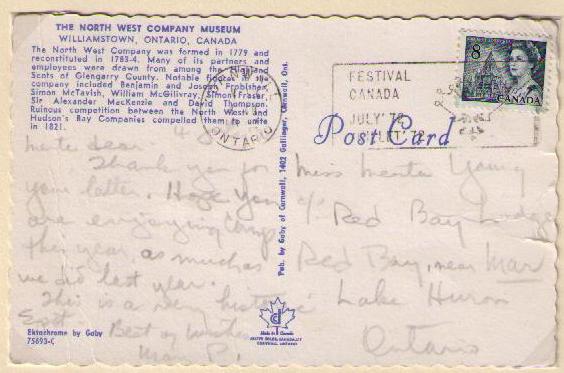 THE NORTH WEST COMPANY MUSEUM
WILLIAMSTOWN, ONTARIO, CANADA
The North West Company was formed in 1779 and
reconstituted in 1783-4. Many of its partners and
employees were drawn from among the Highland
Scots of Glengarry County. Notable figures in the
company included Benjamin and Joseph Frobisher,
Simon McTavish, William McGillivray, Simon Fraser,
Sir Alexander MacKenzie and David Thompson.
Ruinous competition between the North West and
Hudson's Bay Companies compelled them to unite
in 1821.
ONTARIO
FESTIVAL
CANADA
JULY '72
JUILLET '72
8
CANADA
Post Card
Pub. by Gaby of Cornwall, 1402 Gallinger, Cornwall, Ont.
dear
Thank you for
your letter. Hope you
are enjoying camp
this year as much as
we did last year.
This is a very historic
Spot
Best of wishes
Miss Young
c/o Red Bay Lodge
Red Bay, near Mar
Lake Huron
Ontario
Made in Canada
Ektachrome by Gaby
75693-C